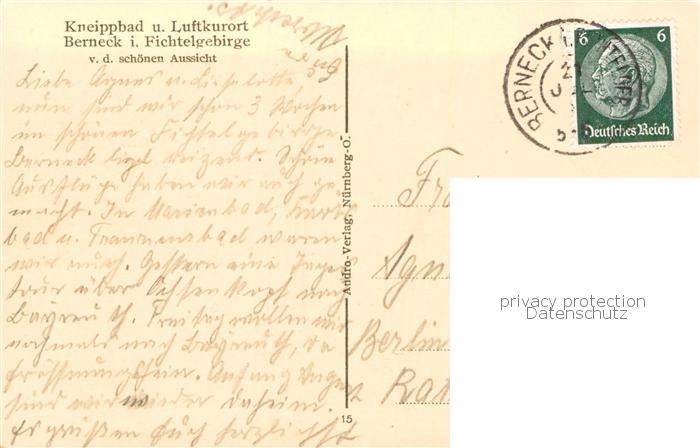 Kneippbad u. Luftkurort
Berneck i. Fichtelgebirge
v. d. schönen Aussicht
Liebe Agnes u. Lieselotte
nun sind wir schon 3 Wochen
im schönen Fichtelgebirge
Berneck liegt reizend. Schöne
Ausflüge haben wir auch ge-
macht. In Marienbad, Karls
bad u. Franzensbad waren
wir auch. Gestern eine Tages
tour über Ochsenkopf nach
Bayreuth. Freitag wollen wir
nochmals nach Bayreuth, da
Eröffnung ist. Anfang August
sind wir wieder daheim.
Es grüßen Euch herzlichst
Andro-Verlag, Nürnberg-O.
15
BERNECK
21
5-6
6 6
Deutsches Reich
Agn
Berlin
privacy protection
Datenschutz